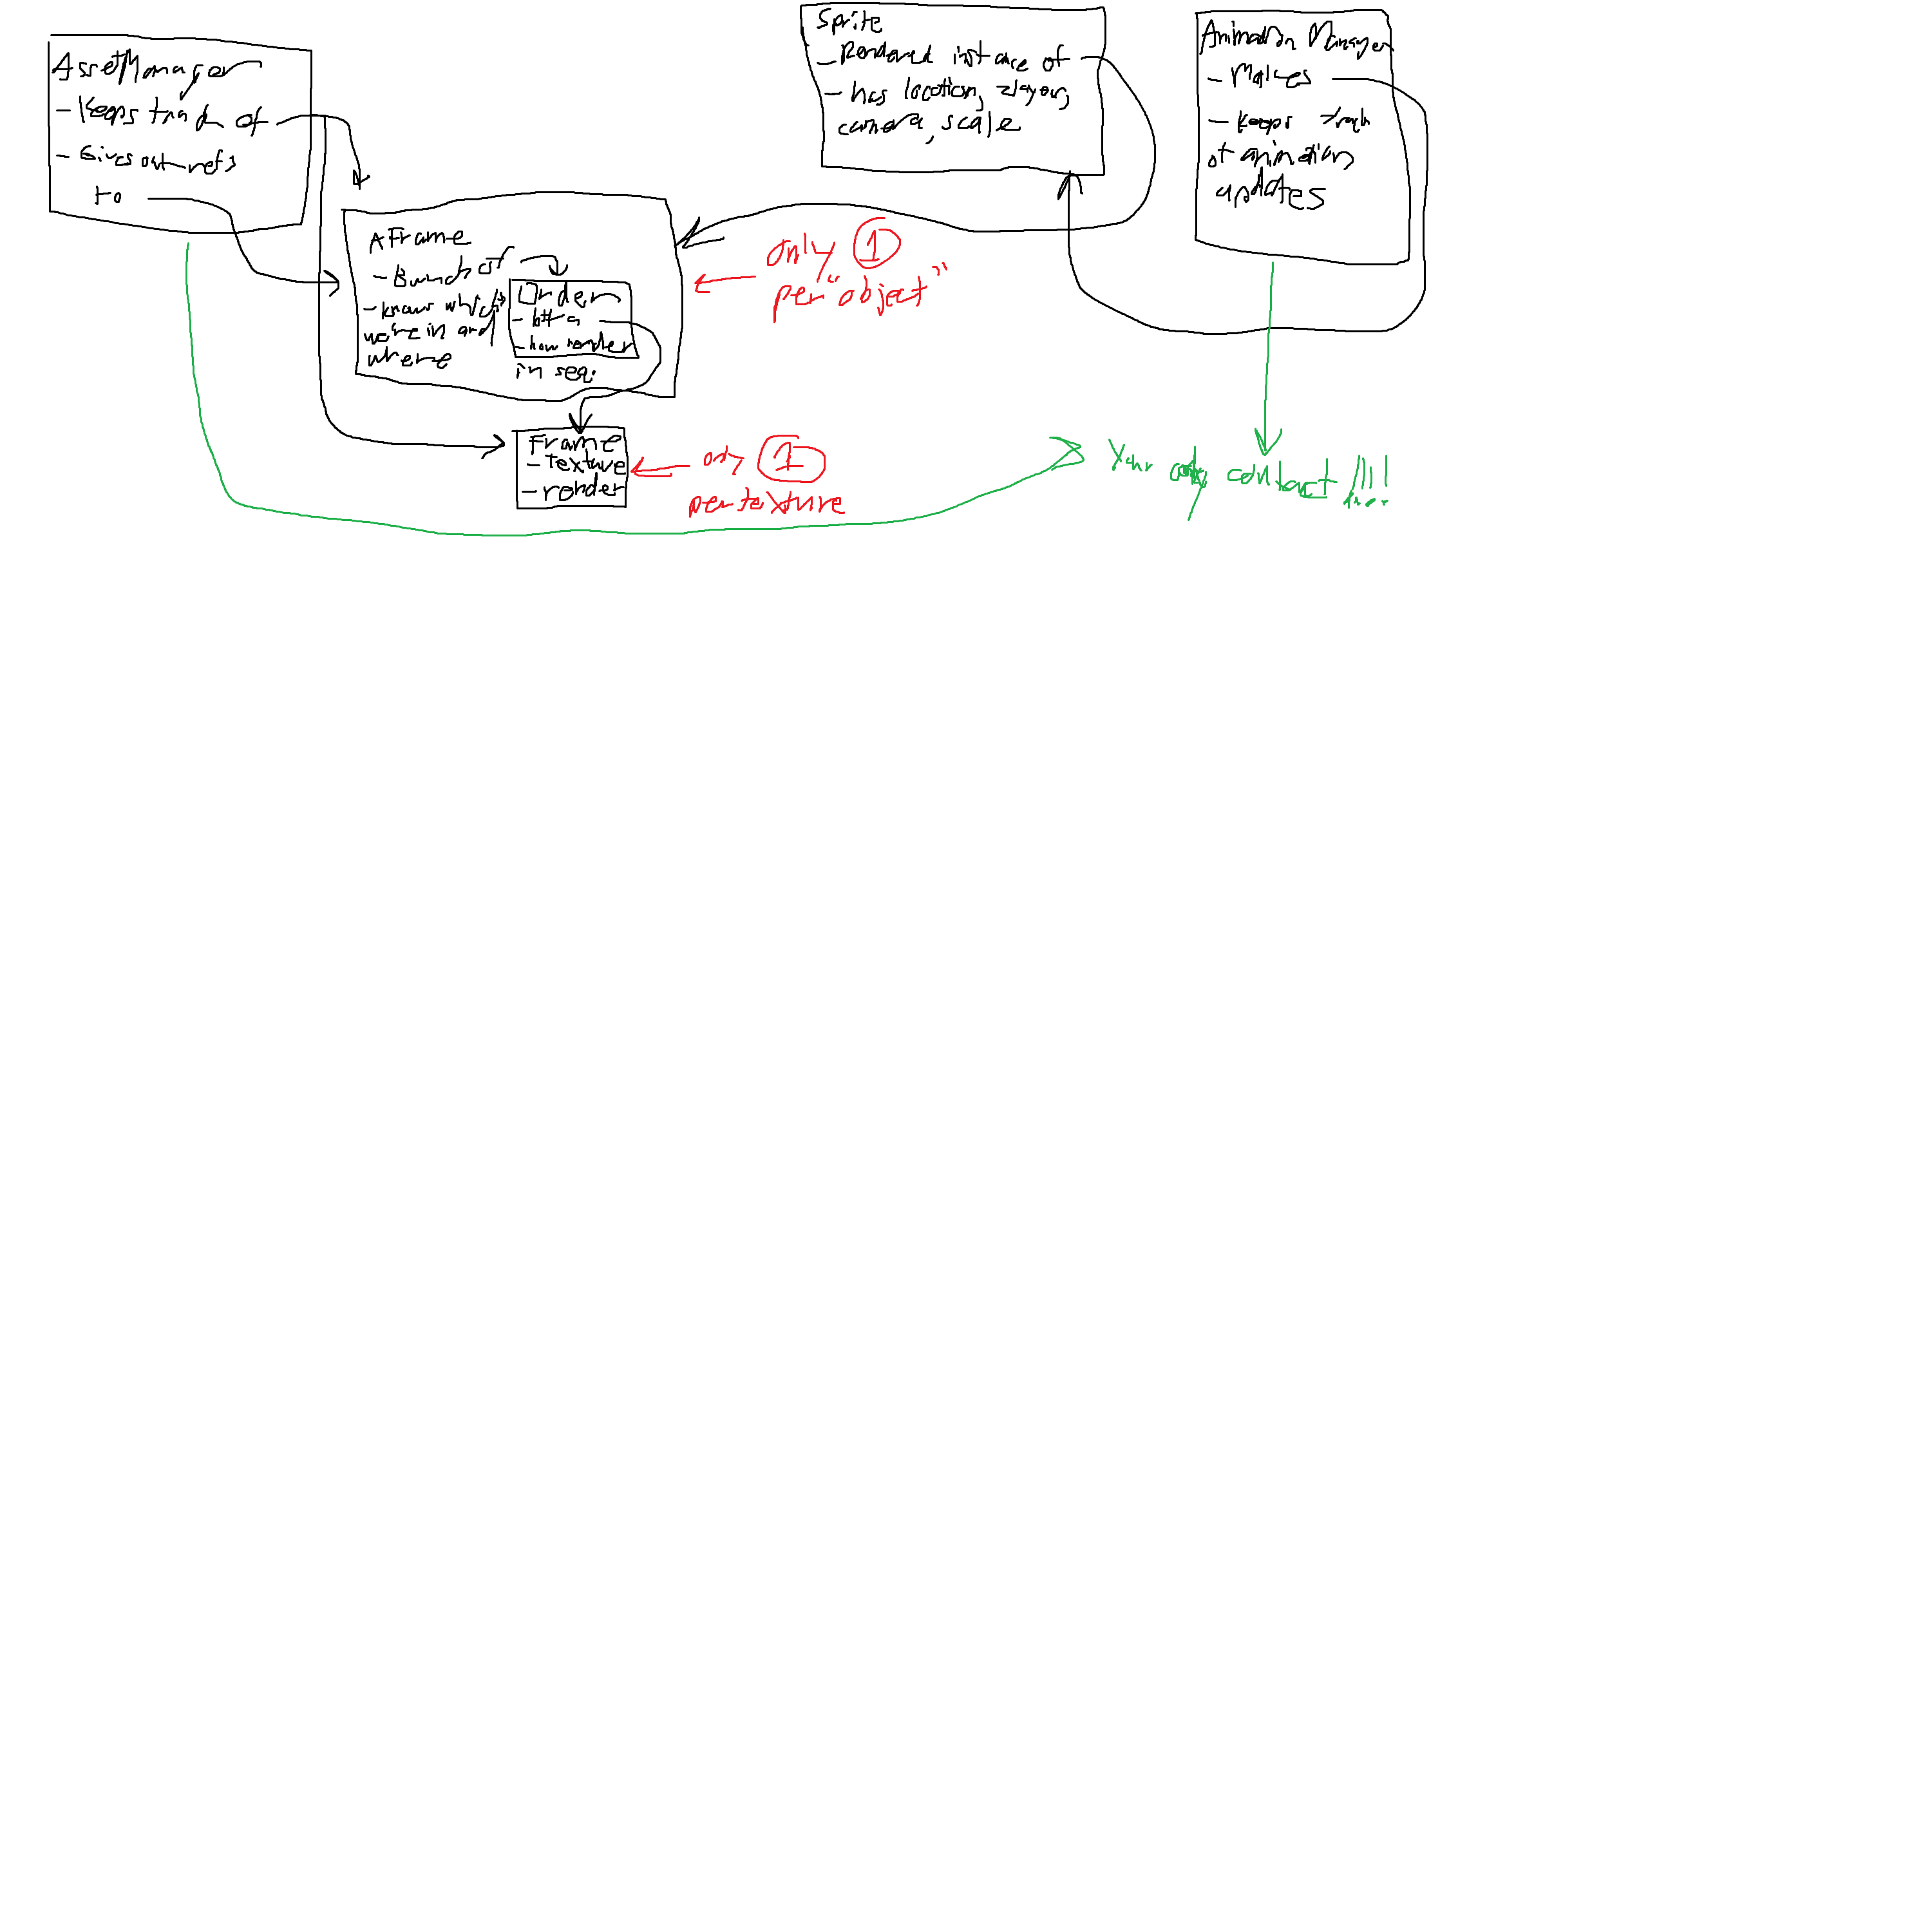 AssetManager
- Keeps track of
- Gives out refs
to
Sprite
- Rendered instance of
- has location, zlayer,
camera, scale
Animation Manager
- Makes
- Keeps track
of animation
updates
AFrame
- Bunch of
- knows which
we're in and
where
Order
- how render
in seq.
only 1
per "object"
Frame
- Texture
- render
only 1
per texture
Your only contact !!!!